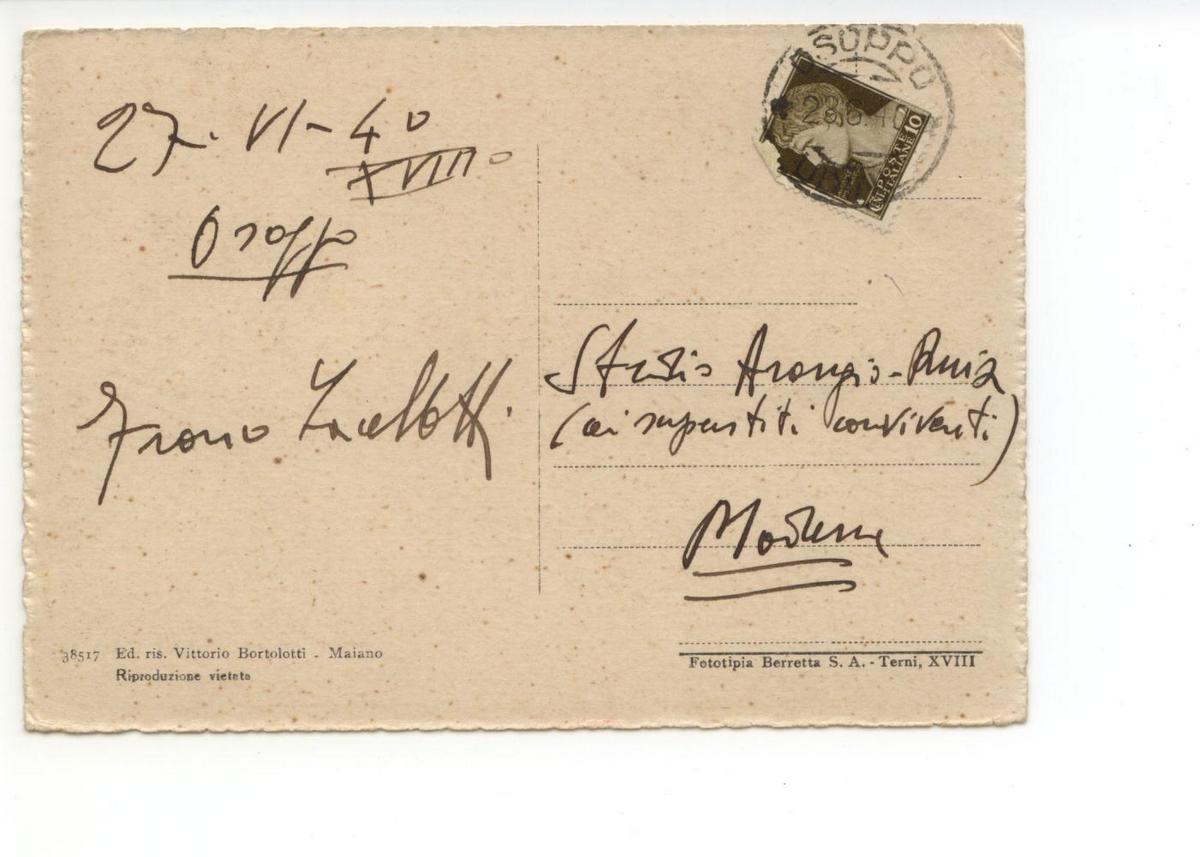 27. VI - 40
XVIII°
Osoppo
OSOPPO
28.6.40
10
POSTE
ITALIANE
Studio Arangio-Ruiz
(ai superstiti conviventi)
Modena
38517 Ed. ris. Vittorio Bortolotti - Maiano
Riproduzione vietata
Fototipia Berretta S. A. - Terni, XVIII